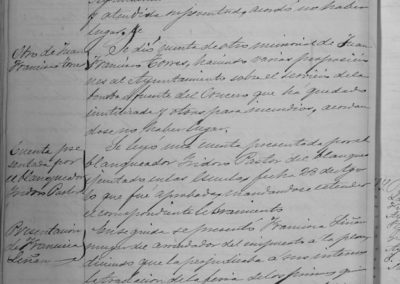 y atendida su pretension, acordó no haber
lugar.
Otro de Juan
Francisco Torres
Se dió cuenta de otro memorial de Juan
Francisco Torres, haciendo varias proposicio
nes al Ayuntamiento sobre el servicio de la
bomba y fuente del Crucero que ha quedado
inutilizada y otras para incendios, acordan
dose no haber lugar.
Cuenta pre
sentada por
el blanqueador
Ysidoro Pastor
Se leyó una cuenta presentada por el
blanqueador Ysidoro Pastor del blanqueo
ejecutado en las Escuelas, fecha 28 de Agos
to que fué aprobada, mandandose estender
el correspondiente libramiento
Presentacion
de Francisca
Liñan
En seguida se presentó Francisca Liñan
muger de arrendador del impuesto a la pesa
diciendo que la perjudicaba a sus intereses
la traslacion de la feria de los